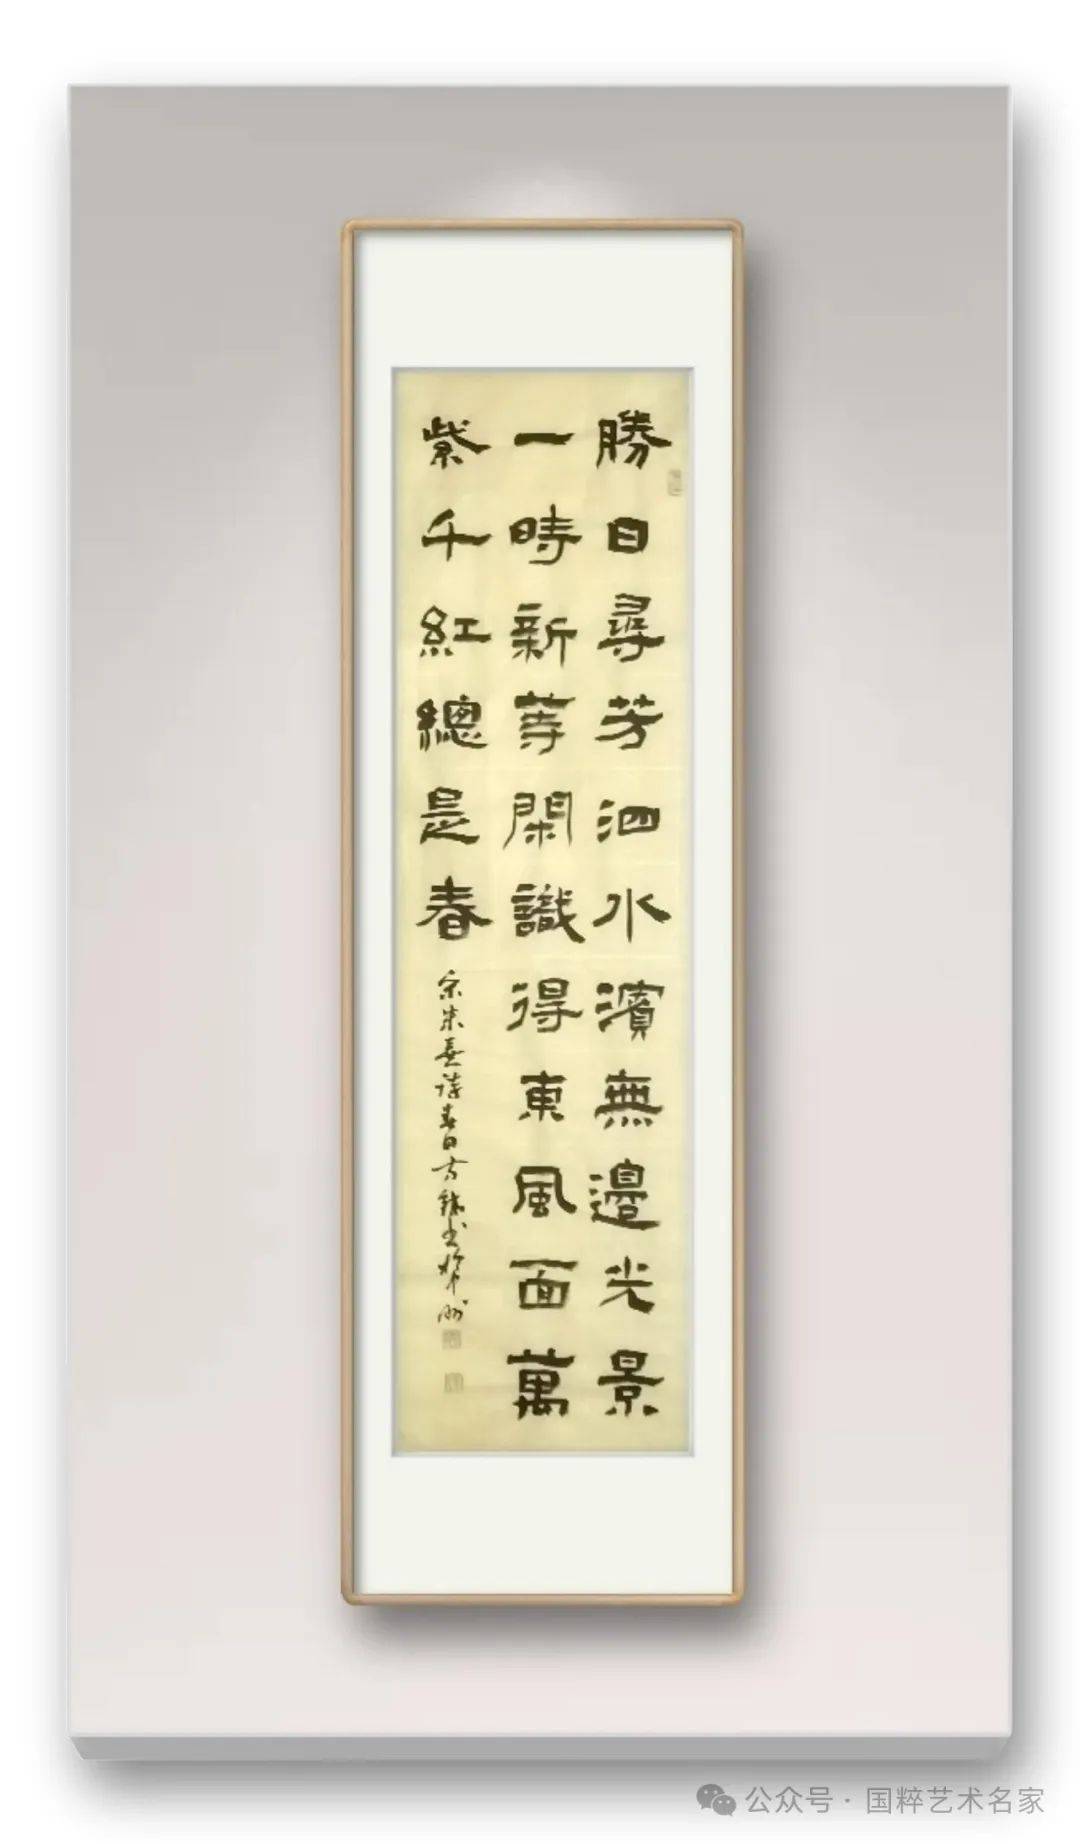 勝日尋芳泗水濱無邊光景
一時新等閑識得東風面萬
紫千紅總是春
宋朱熹詩春日方
公众号·国粹艺术名家